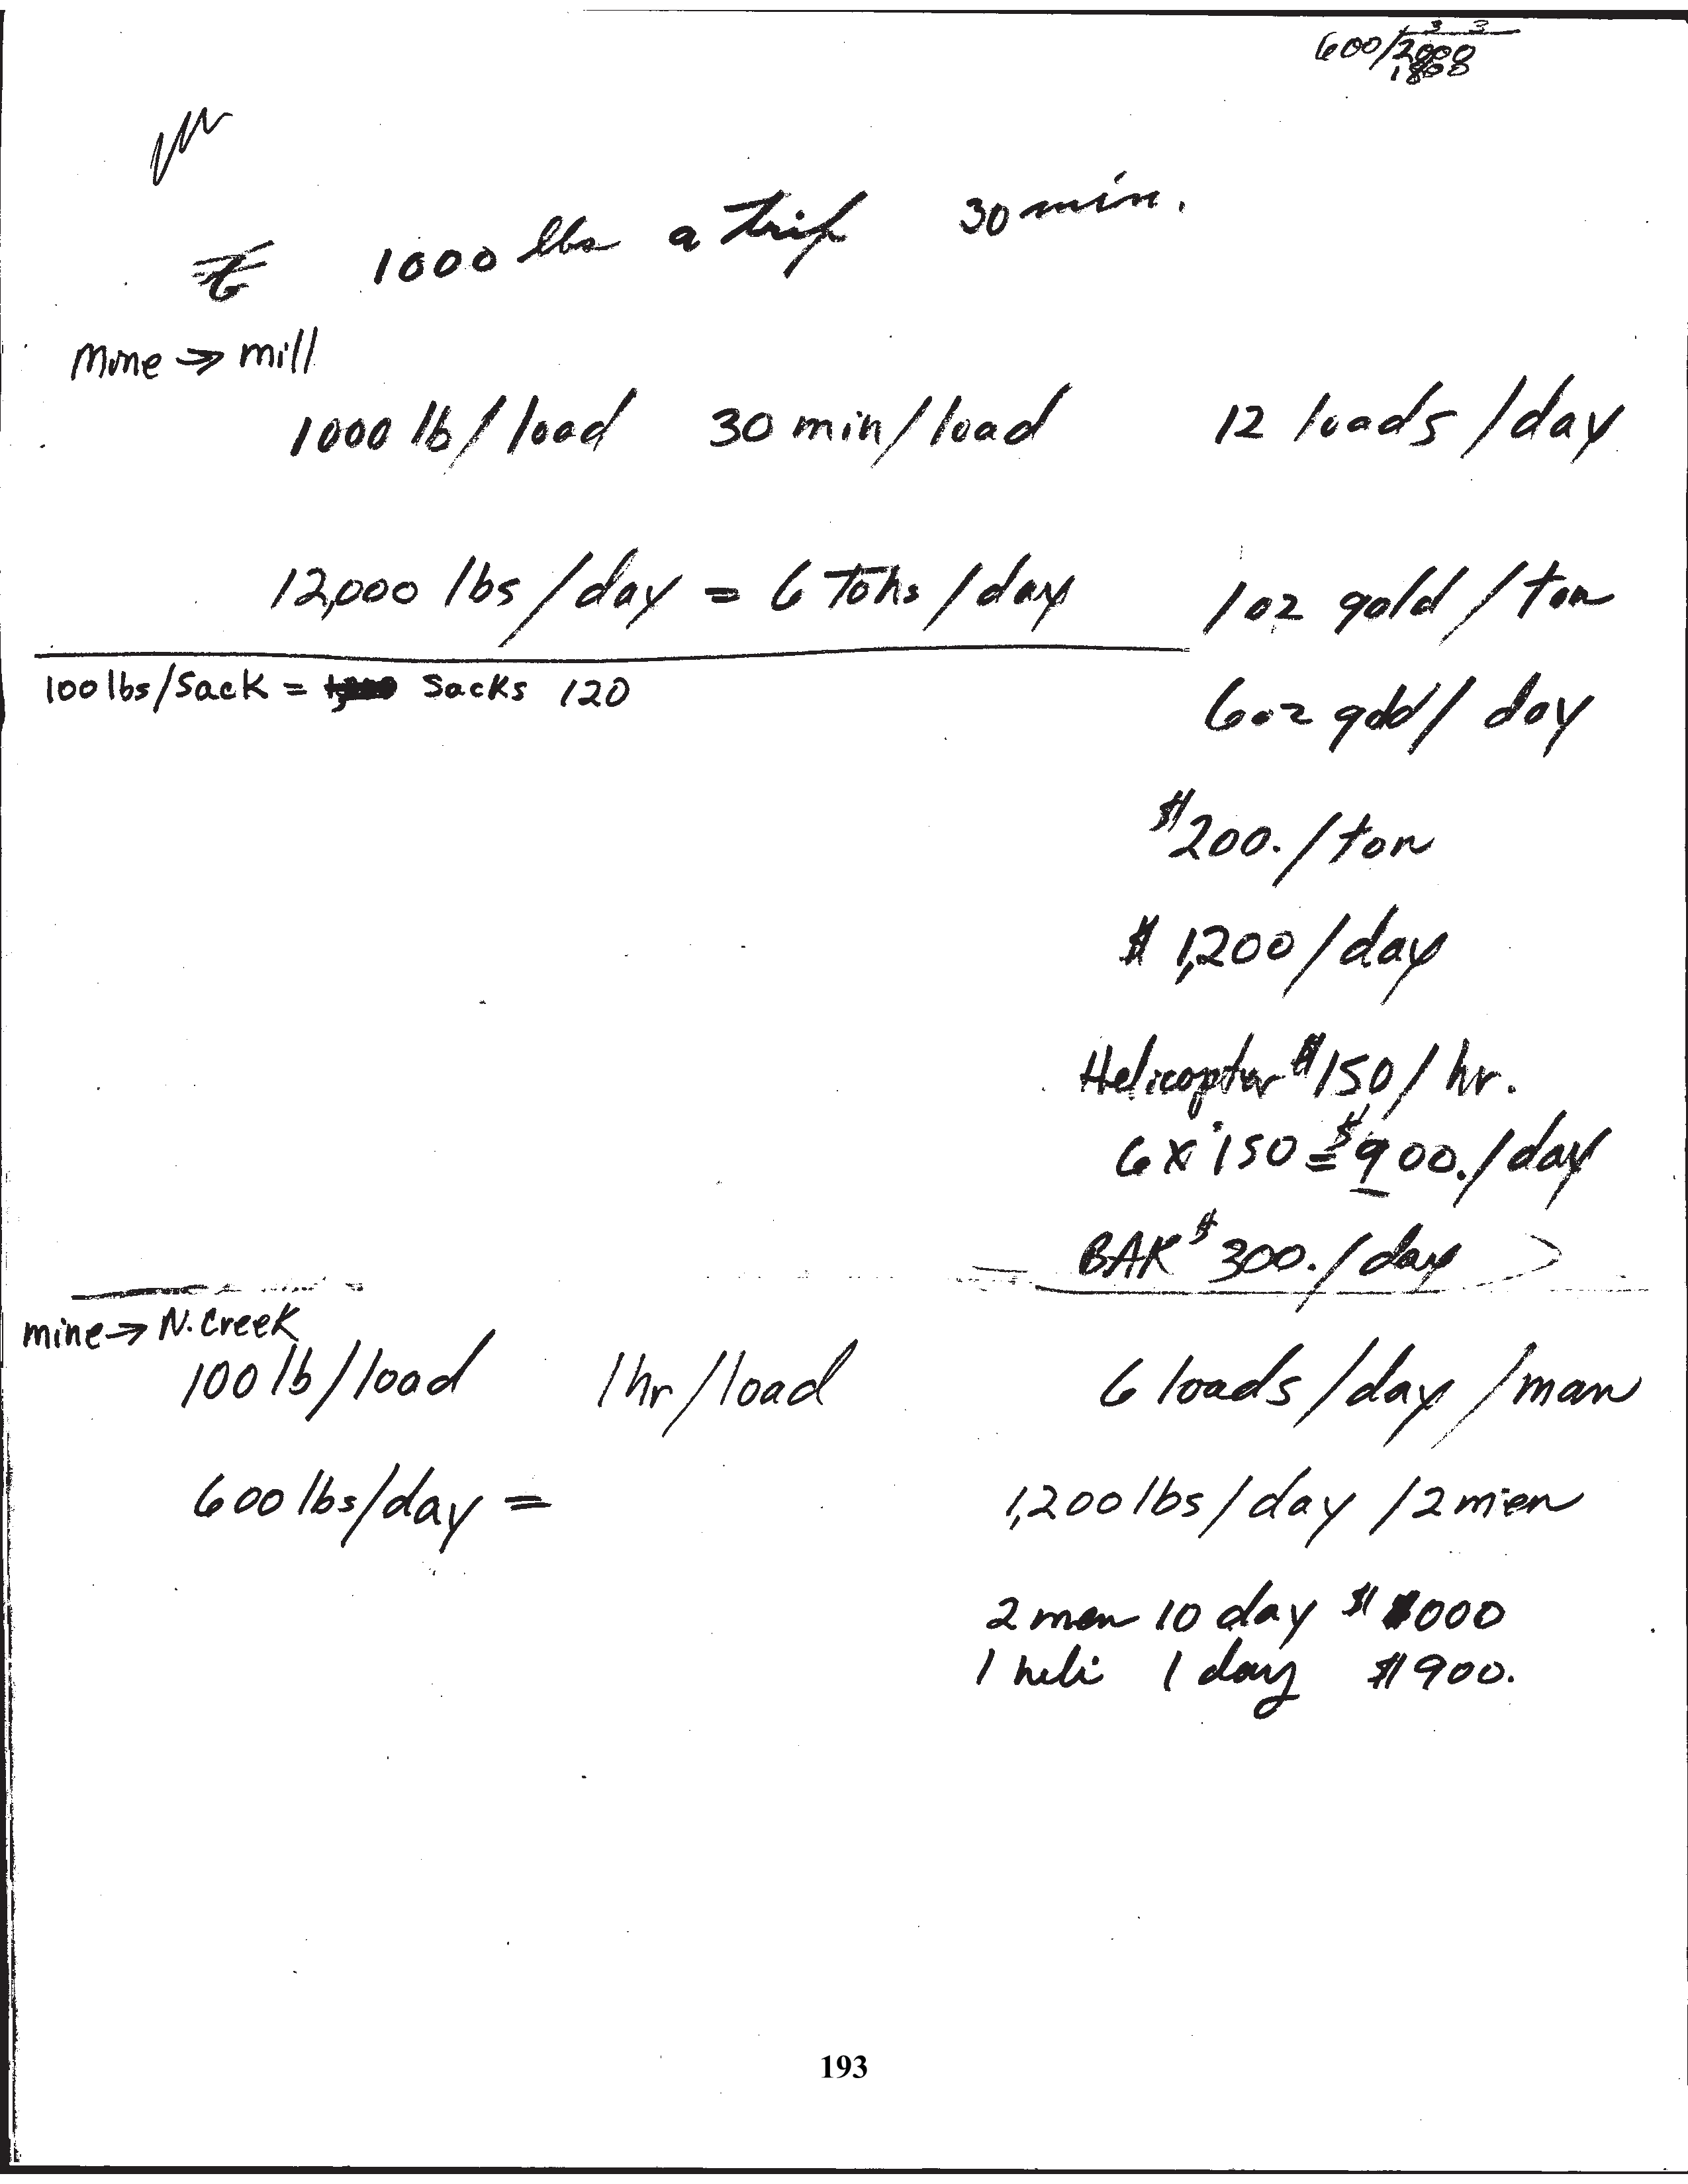 3 3
600/2000
1800
1000 lbs a trip 30 min.
Mine → mill
1000 lb/load 30 min/load 12 loads/day
12,000 lbs/day = 6 Tons/day 1 oz gold/ton
100 lbs/Sack = Sacks 120
6 oz gold/day
$200./ton
$1,200/day
Helicopter $150/hr.
6 x 150 = $900./day
BAK $300./day
mine → N. Creek
100 lb/load 1 hr/load 6 loads/day/man
600 lbs/day = 1,200 lbs/day/2 men
2 men 10 day $ 000
1 heli 1 day $900.
193